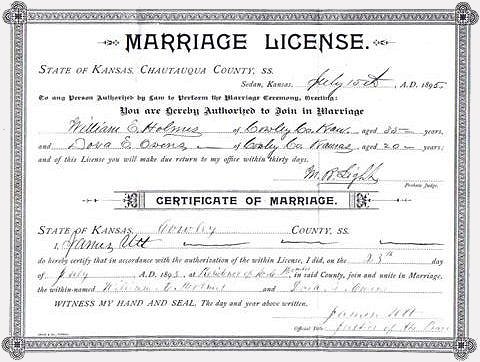 MARRIAGE LICENSE.
STATE OF KANSAS, CHAUTAUQUA COUNTY, SS.
Sedan, Kansas, July 10th A.D. 1895
To any Person Authorized by Law to Perform the Marriage Ceremony, Greeting:
You are Hereby Authorized to Join in Marriage
William E. Holmes of Cowley Co. Kans. aged 35 years,
and Dova E. Owens of Cowley Co. Kansas aged 20 years;
and of this License you will make due return to my office within thirty days.
M. B. Light
Probate Judge.
CERTIFICATE OF MARRIAGE.
STATE OF KANSAS, Cowley COUNTY, SS.
I, James Utt
do hereby certify that in accordance with the authorization of the within License, I did, on the day
of July A.D. 1895 at Residence of in said County, join and unite in Marriage,
the within-named William E. Holmes and Dova E. Owens
WITNESS MY HAND AND SEAL, The day and year above written.
James Utt
Official Title Justice of the Peace